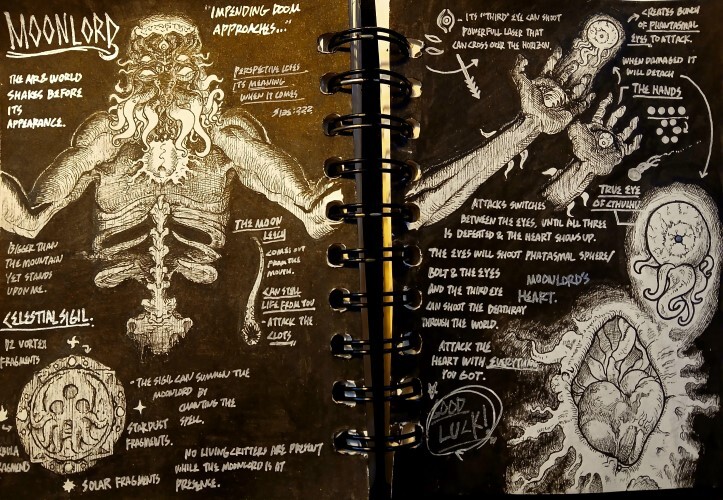 MOONLORD
"IMPENDING DOOM
APPROACHES..."
THE AIR & WORLD
SHAKES BEFORE
ITS
APPEARANCE.
PERSPECTIVE LOSES
ITS MEANING
WHEN IT COMES
SIZE:???
BIGGER THAN
THE MOUNTAIN
YET STANDS
UPON ME.
THE MOON
LEECH
COMES OUT
FROM THE
MOUTH.
CAN STEAL
LIFE FROM YOU
ATTACK THE
CLOTS
CELESTIAL SIGIL:
12 VORTEX
FRAGMENTS
- THE SIGIL CAN SUMMON THE
MOONLORD BY
CHANTING THE
SPELL.
STARDUST
FRAGMENTS.
SOLAR FRAGMENTS
NO LIVING CRITTERS ARE PRESENT
WHILE THE MOONLORD IS AT
PRESENCE.
- ITS "THIRD" EYE CAN SHOOT
POWERFULL LASER THAT
CAN CROSS OVER THE HORIZON.
CREATES BUNCH
OF PHANTASMAL
EYES TO ATTACK.
WHEN DAMAGED IT
WILL DETACH
THE HANDS
TRUE EYE
OF CTHULHU
ATTACKS SWITCHES
BETWEEN THE EYES, UNTIL ALL THREE
IS DEFEATED & THE HEART SHOWS UP.
THE EYES WILL SHOOT PHATASMAL SPHERE/
BOLT & THE EYES
AND THE THIRD EYE
CAN SHOOT THE DEATHRAY
THROUGH THE WORLD.
MOONLORD'S
HEART.
ATTACK THE
HEART WITH EVERYTHING
YOU GOT.
GOOD
LUCK!